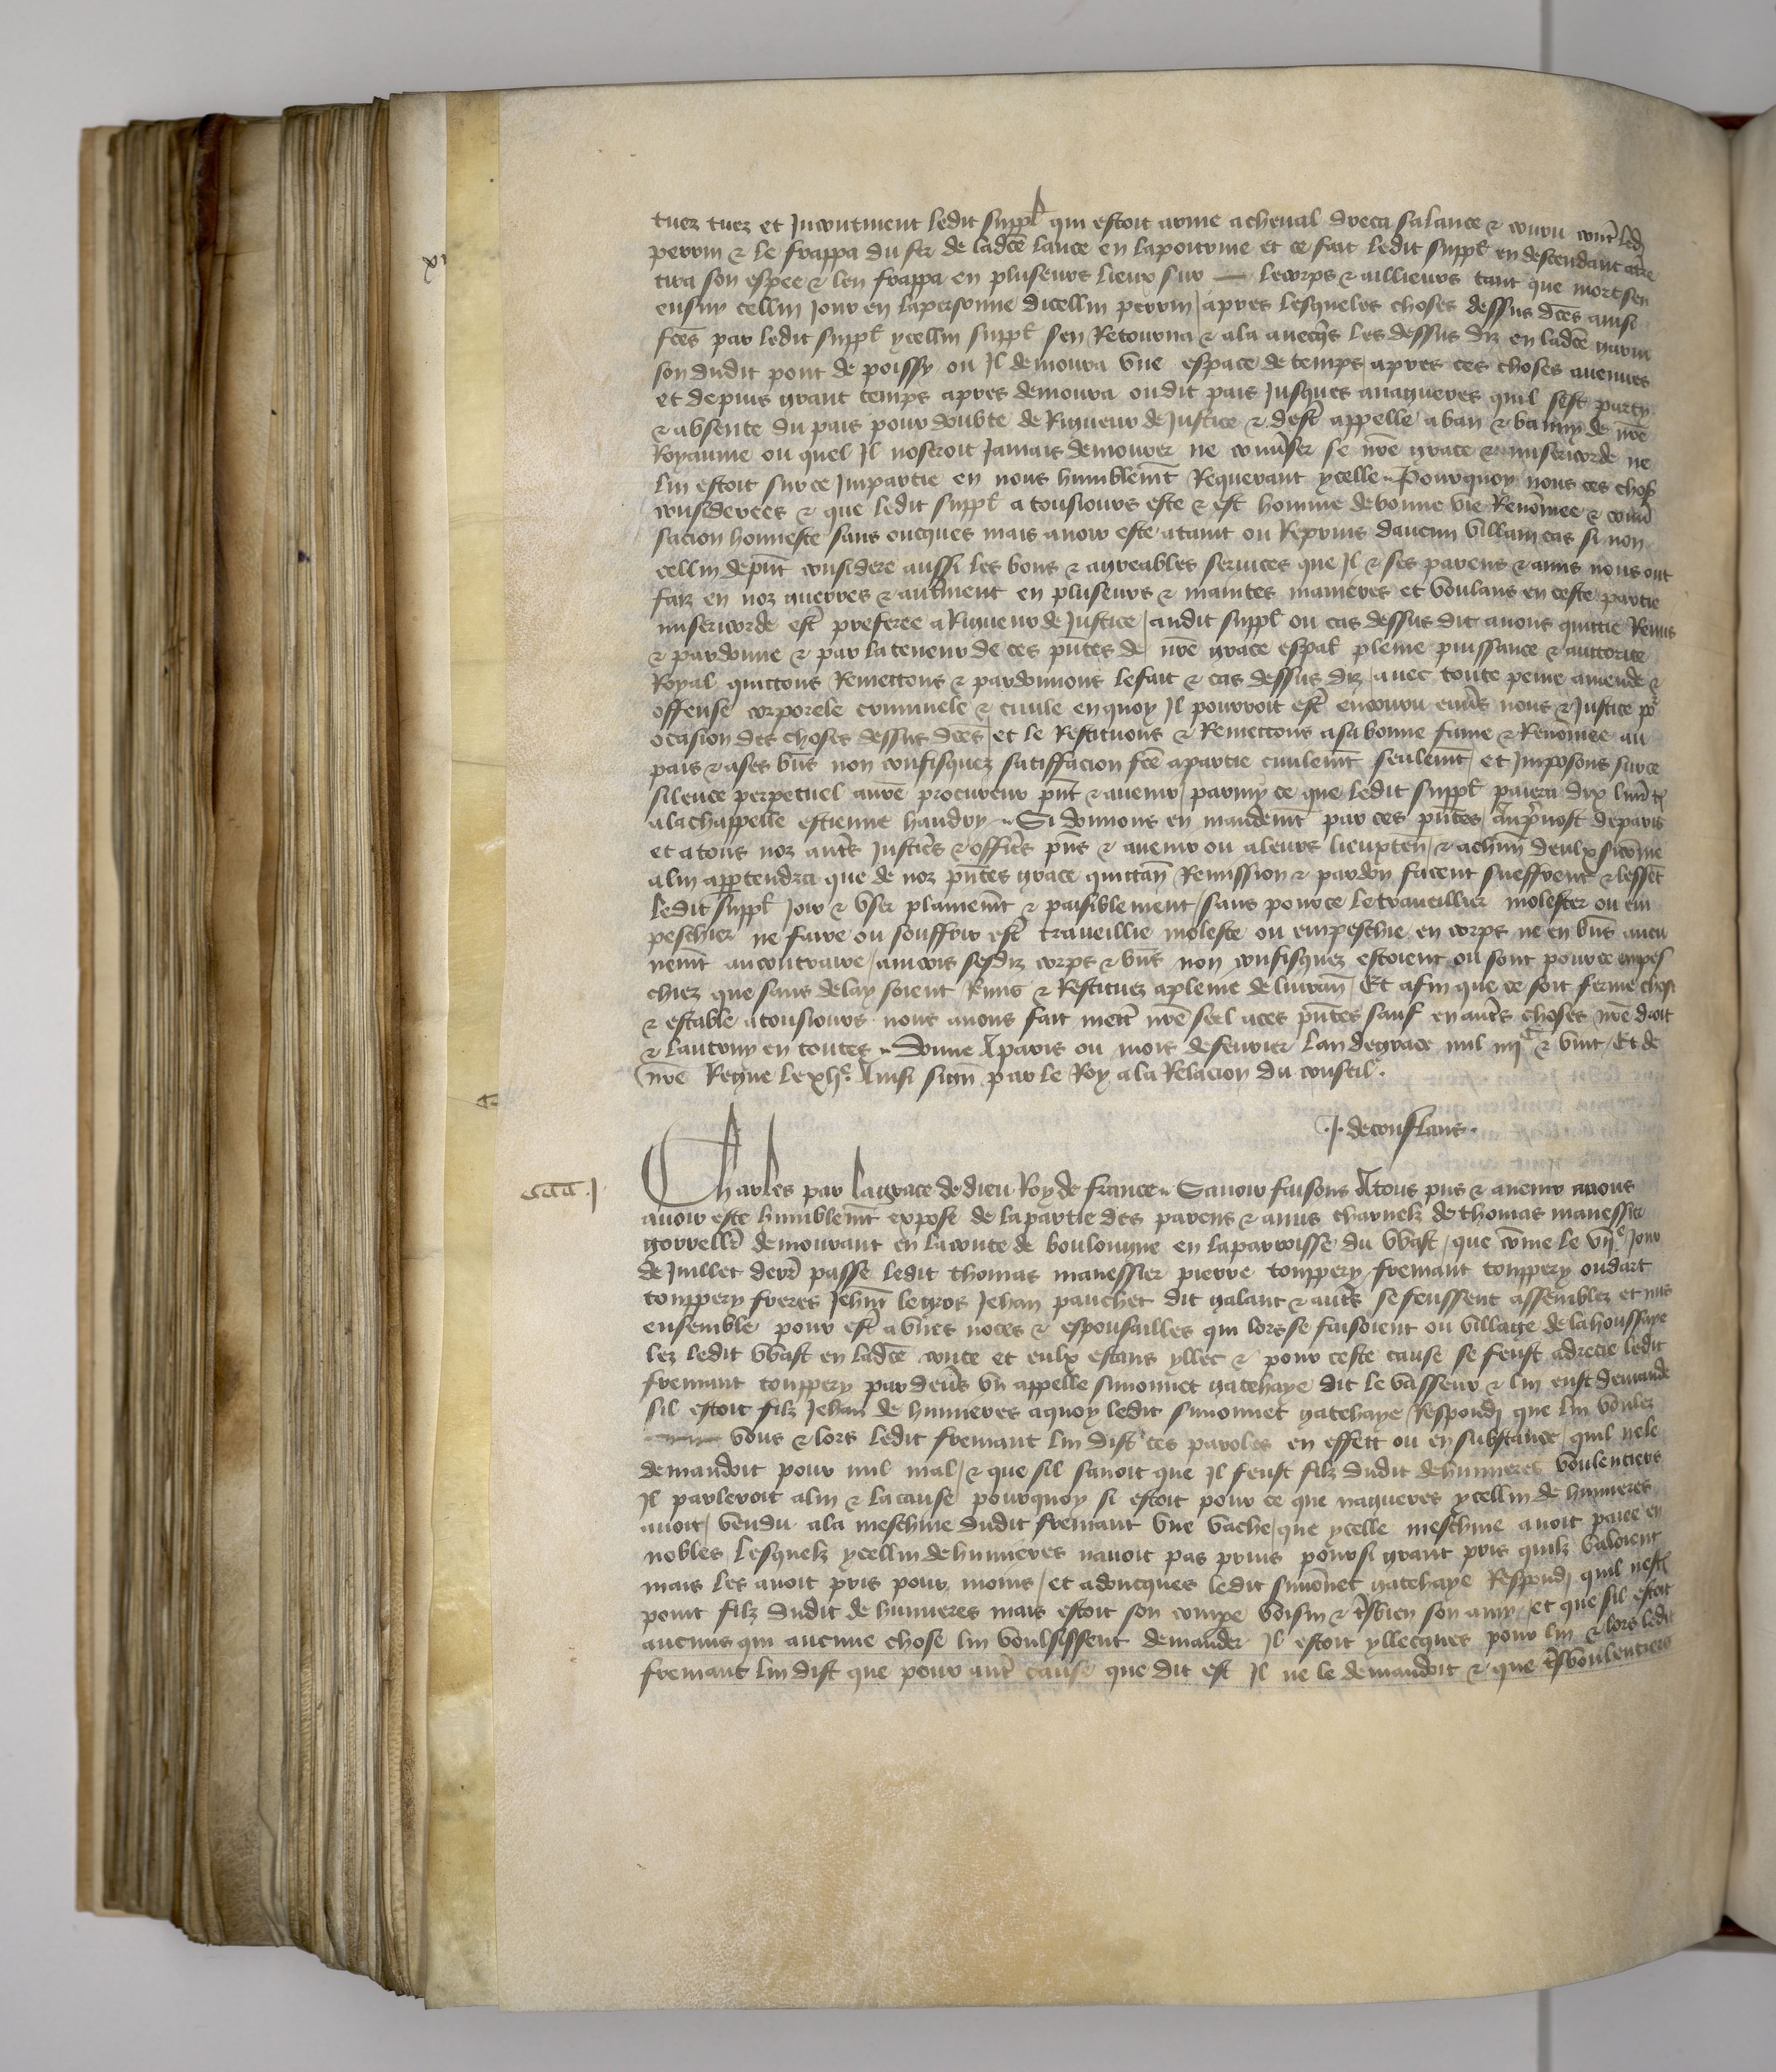 tuez tuez et Incontinent ledit suppl̃ qui estoit arme acheval dreca salance & couru contr̃ led̃
perrin & le frappa du fer de ladcẽ lance en lapoitrine et ce fait ledit suppl̃ en descendant atr̃re
tira son espee & len frappa en pluseurs lieux sur lecorps & aillieurs tant que mort sen
ensuy cellui Jour en lapersonne dicellui perrin / apres lesqueles choses dessus dcẽs ainsi
fcẽs par ledit suppl̃ ycellui suppl̃ sen Retourna & ala auecq̃s les dessus diz en ladcẽ garni
son dudit pont de poissy ou Il demoura vne espace de temps apres ces choses auenues
et depuis grant temps apres demoura oudit pais Jusques anagueres quil sest party
& absente du pais pour doubte de Rigueur de Justice & dest̃ appelle aban & banny de nr̃e
Royaume ou quel Il noseroit Jamais demourer ne conu̾ser se nr̃e grace & misericorde ne
lui estoit sur ce Impartie en nous humblem̃t Requerant ycelle Pourquoy nous ces chos̃
considerees & que ledit suppl̃ a tousiours este & est homme debonne vie Renõmee & conu̾
sacion honneste sans oncques mais auoir este ataint ou Reprins daucun villain cas si non
cellui dep̃nt considere aussi les bons & agreables seruices que Il & ses parens & amis nous ont
faiz en noz guerres & autrement en pluseurs & maintes manieres et voulans en ceste partie
misericorde est̃ preferee a Rigueur de Justice / audit suppl̃ ou cas dessus dit auons quittie Remis
& pardonne & par lateneur de ces p̃ntes de nr̃e grace esp̃al pleine puissance & auctorite
Royal quittons Remettons & pardonnons lefait & cas dessus diz auec toute peine amende &
offense corporele criminele & ciuile en quoy Il pourroit est̃ encouru enu̾s nous & Justice po͛
ocasion des choses dessus dcẽs / et le Restituons & Remettons asa bonne fame & Renõmee au
pais & ases biẽs non confisquez satiffacion fcẽ apartie ciuilem̃t seulem̃t / et Imposons sur ce
silence perpetuel anr̃e procureur p̃nt & auenir / parmy ce que ledit suppl̃ paiera dix liur̃ tz̃
alachappelle estienne haudry Si donnons en mandem̃t par ces p̃ntes au p̃uost deparis
et atous noz autr̃s Justic̃rs & offic̃rs p̃ns & auenir ou aleurs lieuxten̄ / & achũn deulx sicõme
alui appartendra que de noz p̃ntes grace quittan̄ Remission & pardon facent sueffrent & lessẽt
ledit suppl̃ Joir & vser plainem̃t & paisiblement / sans pource le traueillier molester ou em
peschier ne faire ou souffrir est̃ traueillie moleste ou empeschie en corps ne en biẽs aucu
nem̃t aucontraire / aincois sesdiz corps & biẽs non confisquez estoient ou sont pource empes
chiez que sans delay soient Remis & Restituez apleine deliuran̄ / Et afin que ce soit ferme chose
& estable atousiours nous auons fait mettr̃ nr̃e seel aces p̃ntes sauf en autr̃s choses nr̃e droit
& lautruy en toutes Donne Aparis ou mois de feurier lan degrace mil iiijᶜ & vint / Et de
nr̃e Regne lexljᵉ. Ainsi signe par le Roy ala Relacion du conseil.
.J. deconflans.
cccc.j
Charles par lagrace de dieu Roy de france Sauoir faisons Atous p̃ns & auenir nous
auoir este humblem̃t expose de lapartie des parens & amis charnelz de thomas manessier
gorrellr̃ demourant en laconte de boulongne en laparroisse du vvast / que cõme le vijᵉ Jour
de Juillet derr̃ passe ledit thomas manessier pierre tonppery fremant tonppery oudart
tonppery freres Jehan legros Jehan pauchet dit galant & autr̃s se feussent assemblez et mis
ensemble pour est̃ avnes noces & espousailles qui lors se faisoient ou village de lahoussaye
lez ledit vvast en ladcẽ conte et eulx estans yllec & pour ceste cause se feust adrecie ledit
fremant tonppery par deu̾s vn appelle simonnet gatehaye dit le vasseur & lui eust demande
sil estoit filz Jehan de hunieres aquoy ledit simonnet gatehaye Respondi que lui voulez
vous & lors ledit fremant lui dist ces paroles en effect ou en substance / quil nele
demandoit pour nul mal / & que sil sauoit que Il feust filz dudit dehunieres voulentiers
Il parleroit alui & lacause pourquoy si estoit pour ce que nagueres ycellui de hunieres
auoit vendu ala meschine dudit fremant vne vache / que ycelle meschine auoit paiee en
nobles lesquelz ycellui dehunieres nauoit pas prins poursi grant pris quilz valoient
mais les auoit pris pour moins / et adoncques ledit simõnet gatehaye Respondi quil nest
point filz dudit de hunieres mais estoit son compe voisin & tr̃sbien son amy / et que sil estoit
aucuns qui aucune chose lui voulsissent demander Il estoit yllecques pour lui & lors ledit
fremant lui dist que pour autr̃ cause que dit est Il ne le demandoit & que tr̃svoulentiers